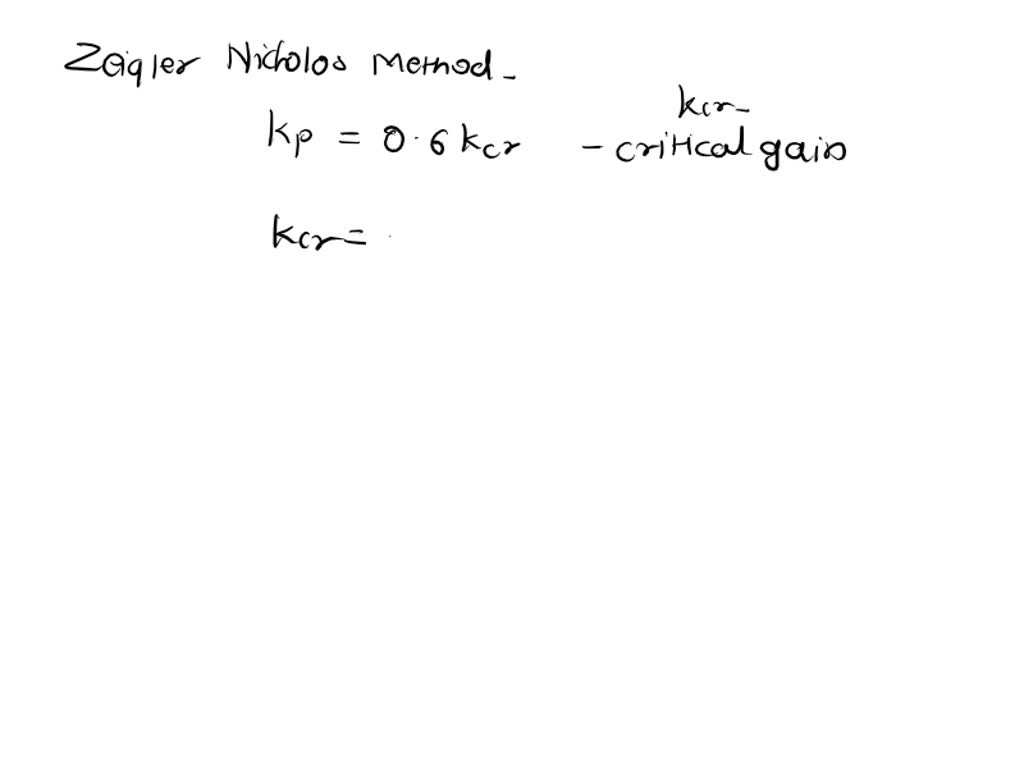 Zeigler Nicholos Method -
kcr -
kp = 0.6 kcr - critical gain
kcr =